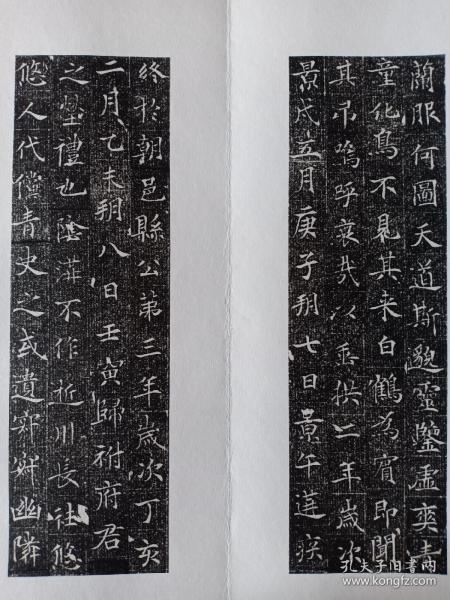 蘭服何圖天道斯邈靈鑒虛奕青
童化鳥不見其来白鶴為賓即聞
其吊嗚呼哀哉以垂拱二年歲次
景戌五月庚子朔七日景午遘疾
終於朝邑縣公第三年歲次丁亥
二月乙未朔八日壬寅歸祔府君
之塋禮也陰溝不作逝川長往悠
悠人代儻青史之或遺郊幽隣
孔夫子旧书网
www.kongfz.com